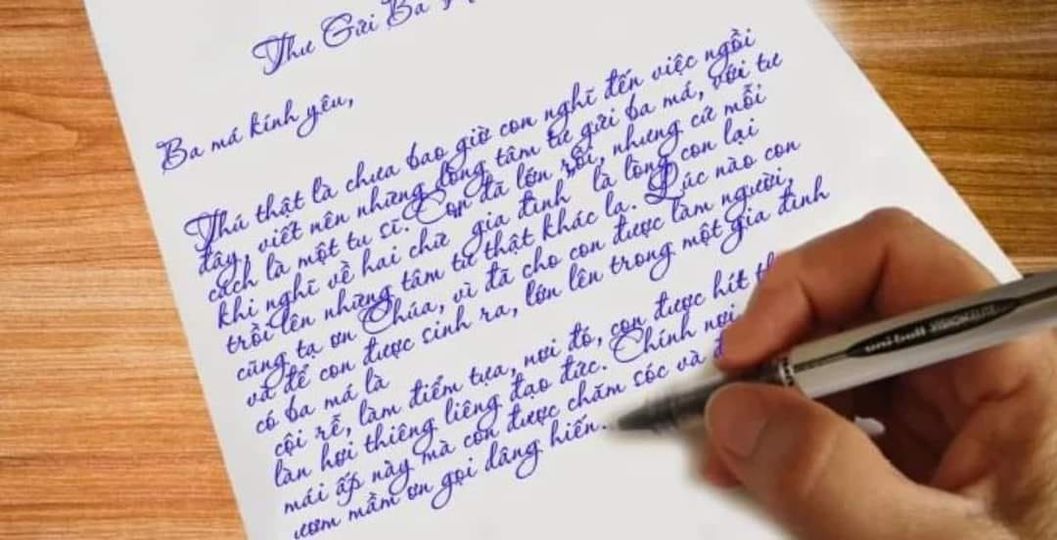 Thư Gửi Ba
Ba má kính yêu,
Thú thật là chưa bao giờ con nghĩ đến việc ngồi
đây, viết nên những dòng tâm tư gửi ba má, với tư
cách là một tu sĩ. Con đã lớn rồi, nhưng cứ mỗi
khi nghĩ về hai chữ gia đình là lòng con lại
trỗi lên những tâm tư thật khác lạ. Lúc nào con
cũng tạ ơn Chúa, vì đã cho con được làm người,
và để con được sinh ra, lớn lên trong một gia đình
có ba má là
cội rễ, làm điểm tựa, nơi đó, con được hít
làn hơi thiêng liêng đạo đức. Chính nơi
mái ấp này mà con được chăm sóc và
ươm mầm ơn gọi dâng hiến.
uni-ball